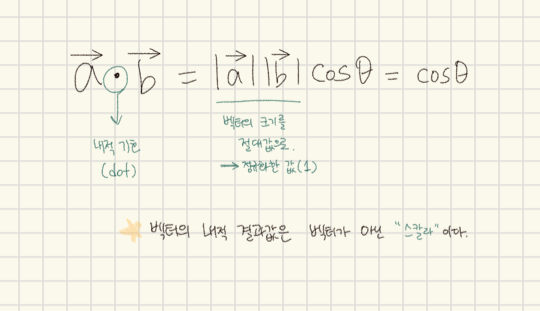 a · b = |a||b| cosθ = cosθ
내적 기호
(dot)
벡터의 크기를
절대값으로.
→ 정규화한 값(1)
벡터의 내적 결과값은 벡터가 아닌 "스칼라"이다.